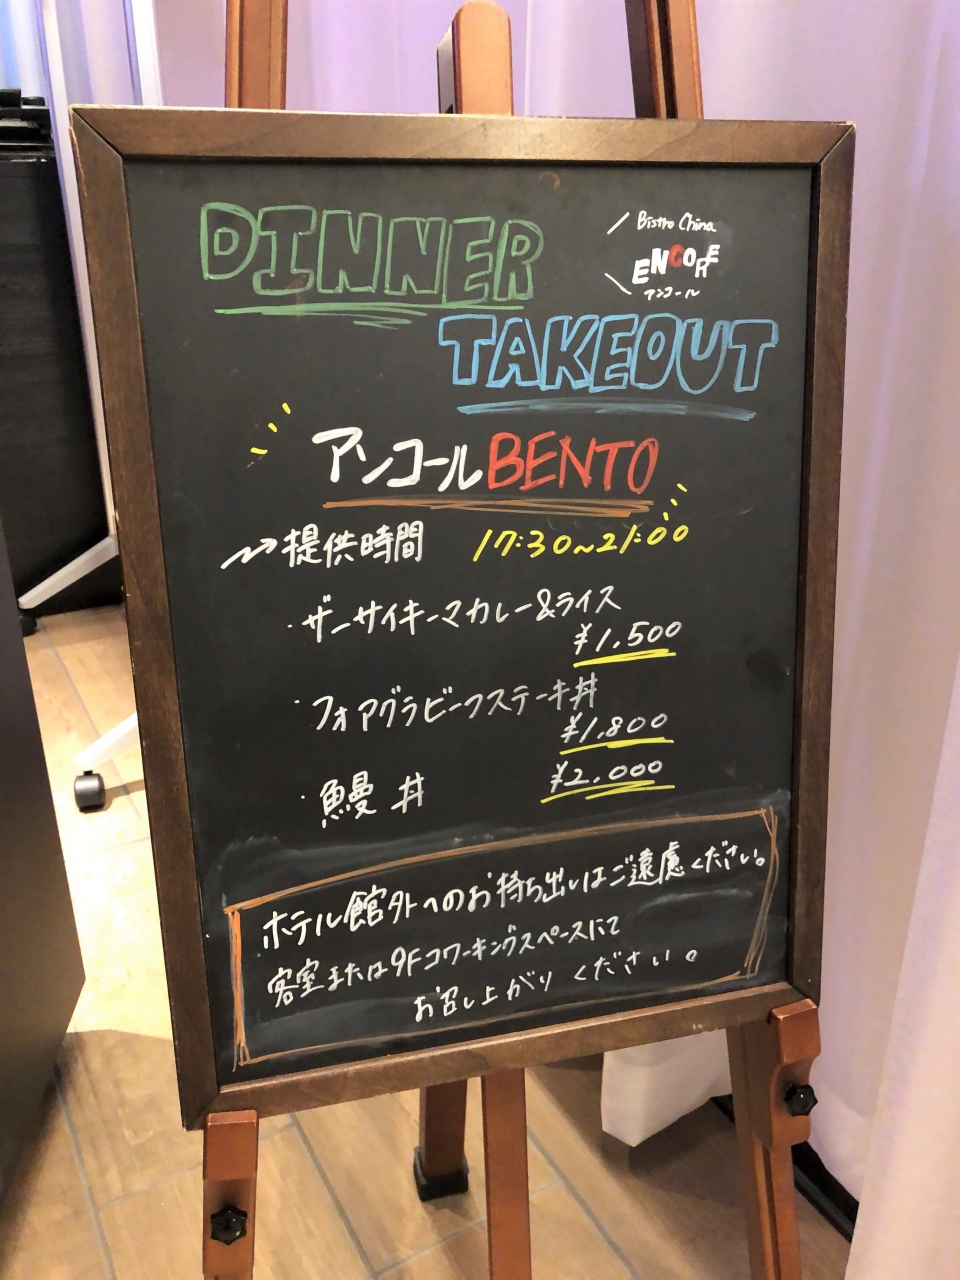 DINNER
Bistro China
ENCORE
アンコール
TAKEOUT
アンコールBENTO
提供時間 17:30~21:00
・ザーサイキーマカレー&ライス
¥1,500
・フォアグラビーフステーキ丼
¥1,800
・鰻丼 ¥2,000
ホテル館外へのお持ち出しはご遠慮ください。
客室または9Fコワーキングスペースにて
お召し上がりください。